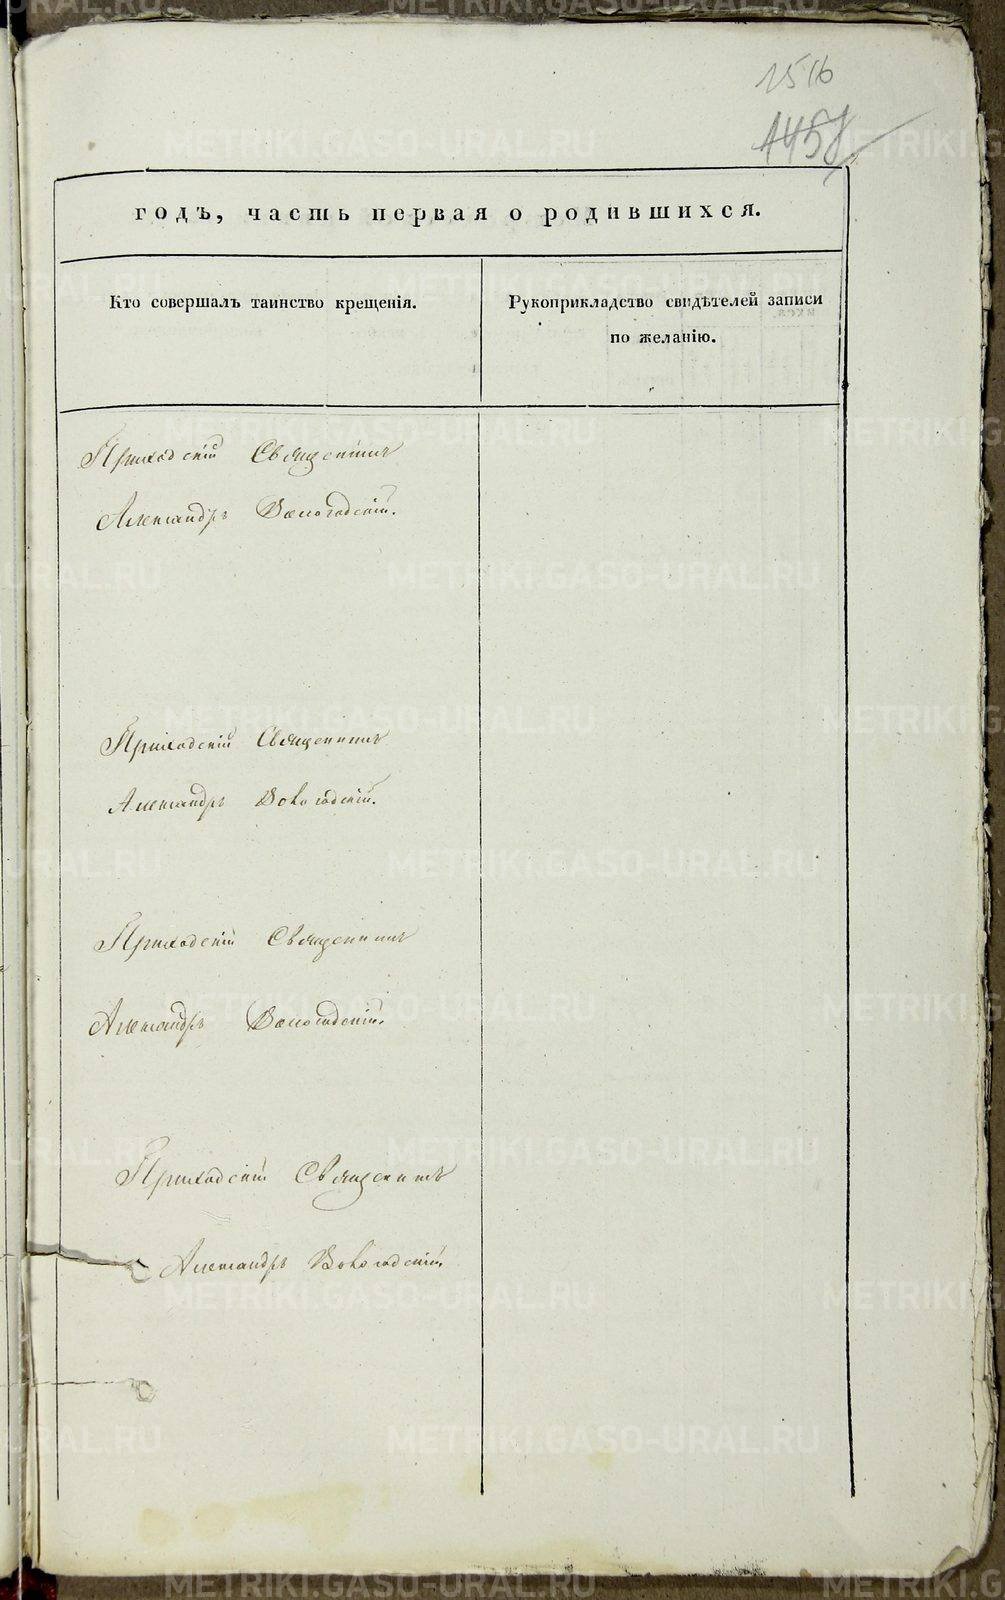 1516
1457
годъ, часть первая о родившихся.
Кто совершалъ таинство крещенія.
Рукоприкладство свидѣтелей записи
по желанію.
Приходскій Священникъ
Александръ Вологодскій.
Приходскій Священникъ
Александръ Вологодскій.
Приходскій Священникъ
Александръ Вологодскій.
Приходскій Священникъ
Александръ Вологодскій.
METRIKI.GASO-URAL.RU